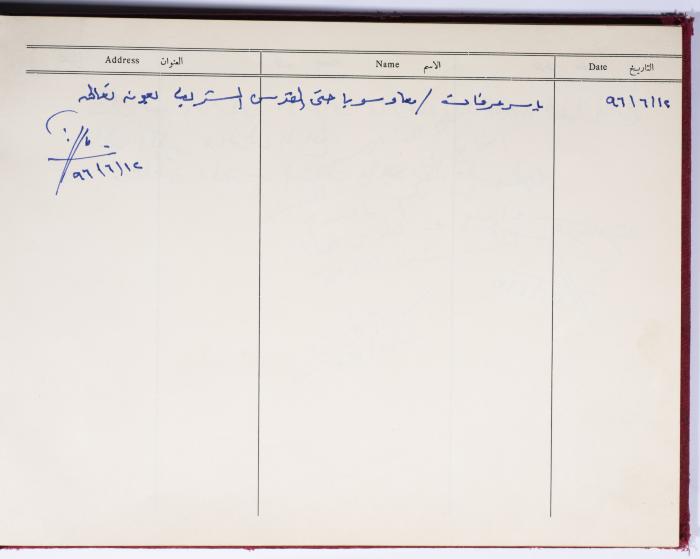 التاريخ Date
الاسم Name
العنوان Address
٩٦/٦/١٢
ياسر عرفات / معاً وسوياً حتى القدس الشريف بعونه تعالى
٩٦/٦/١٢